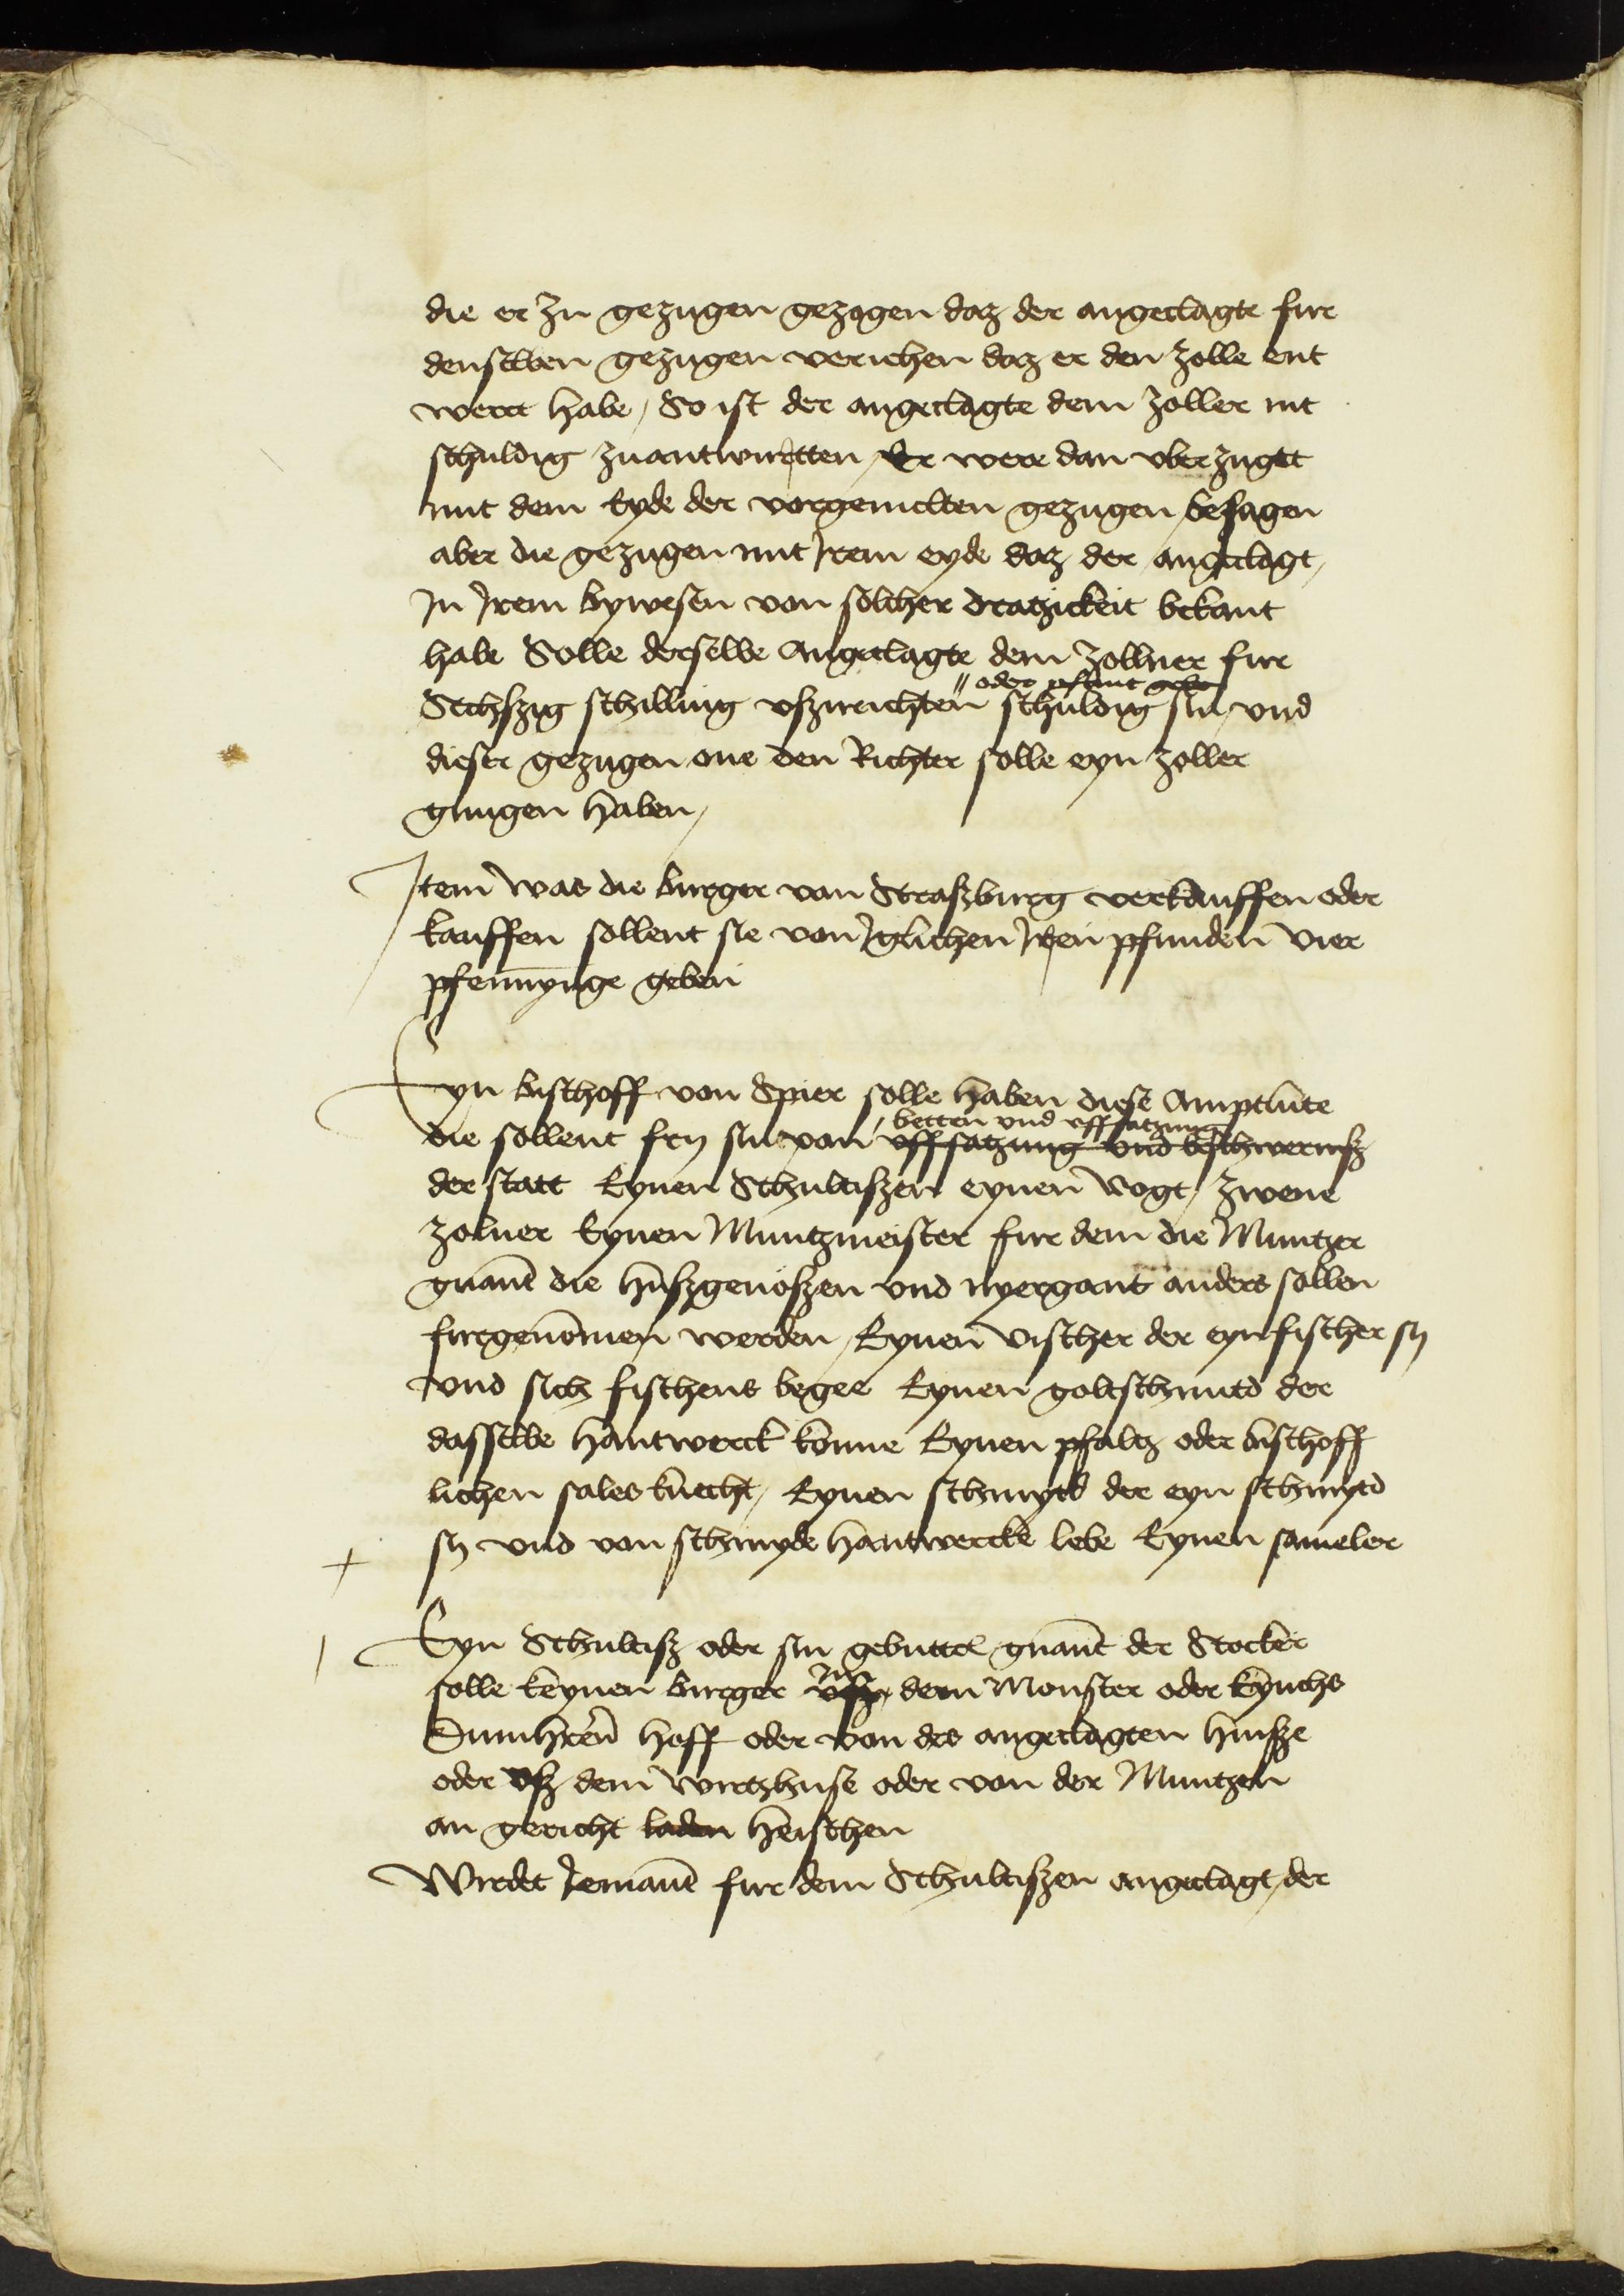 die er zu gezugen gezogen daz der angeclagte fure
denselben gezugen veriehen daz er den zolle ent
wert habe / So ist der angeclagte dem zoller nit
schuldig zuantwurtten / Er were dan vberzugtt
mit dem Eyde der vorgemelten gezugen / besagen
aber die gezugen mit Irem eyde daz der angeclagt /
In Irem bywesen von solcher dratzickeit bekant
habe Solle derselbe Angeclagte dem zollner fure
oder pfant geben
Sechszig schilling vszurichten schuldig sin / vnd
dieser gezugen one den Richter solle eyn zoller
gnugen haben /
Item was die burger von Straßburg verkauffen oder
kauffen sollent sie von Iglichen Iren pfunden vier
pfennynge geben
Eyn bischoff von Spier solle haben diese Amptlute
betten vnd vffsatzung
die sollent fry sin von vffsatzung vnd beschwerniß
der statt Eynen Schultißen eynen vogt / zwene
zolner Eynen Muntzmeister fur dem die Muntzer
gnant die hußgenoßen vnd nyergant anders sollen
furgenomen werden / Eynen vischer der eyn fischer sy
vnd sich fischens begee Eynen goltschmid der
dasselbe hantwerck konne Eynen pfaltz oder bischoff
lichen sales knecht / Eynen schmyd der eyn schmyd
sy vnd von schmyde hantwercke lebe Eynen sameler
Eyn Schultiß oder sin gebuttel gnant der Stocker
In
solle keynen burger vß dem Monster oder Eynichs
Dumhern hoff oder von des angeclagten huße
oder vß dem wirtzhuse oder von der Muntzen
an gericht laden heischen
Wirdet Iemant fur dem Schultißen angeclagt / der